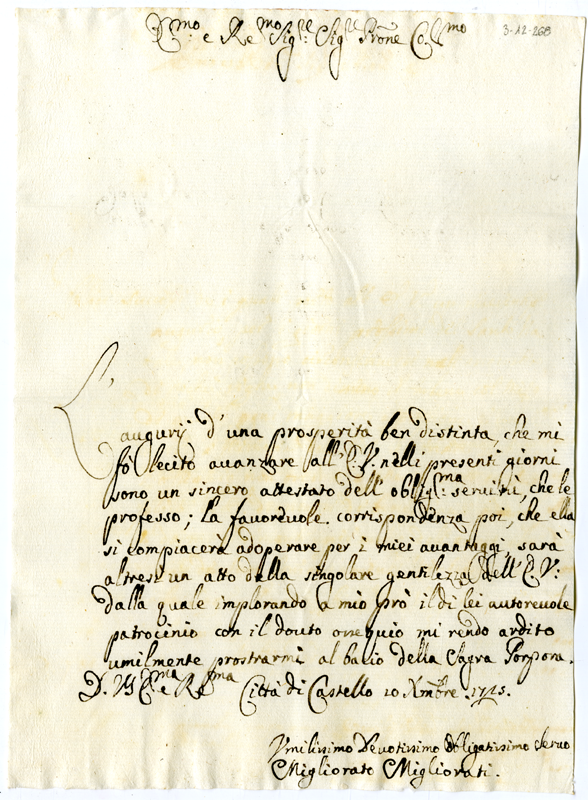 E.mo e Re.mo Sig.re Sig.re Prone Col.mo
3-12-268
L'
augurij d'una prosperità ben distinta, che mi
fò lecito avanzare all'E.V. nelli presenti giorni
sono un sincero attestato dell' oblig.ma servitù, che le
professo; La favorevole corrispondenza poi, che ella
si compiacerà adoperare per i miei avantaggi, sarà
altresì un atto della singolare gentilezza dell' E.V:
dalla quale implorando a mio prò il di lei autorevole
patrocinio con il dovuto ossequio mi rendo ardito
umilmente prostrarmi al bacio della Sagra Porpora.
D. V. E.ma e R.ma Città di Castello 20 Xmbre. 1725.
Vmilissimo Devotissimo Obligatissimo Servo
Migliorato Migliorati.